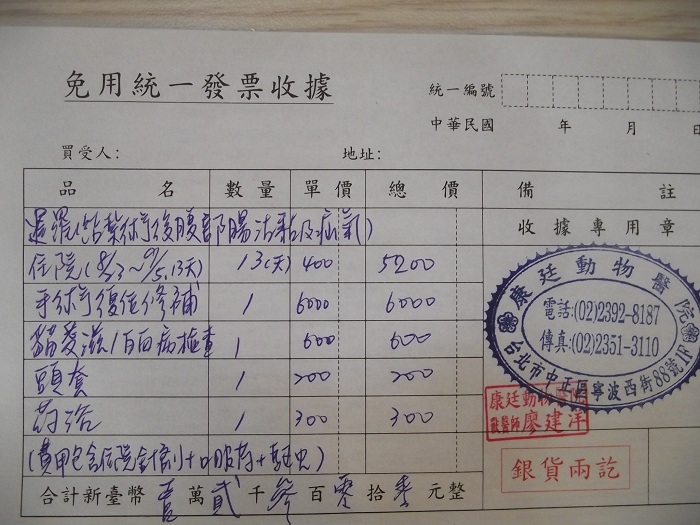 免用統一發票收據
統一編號
中華民國 年 月 日
買受人： 地址：
品 名 數量 單價 總 價 備 註
術後腹部腸沾黏及疝氣)
住院(8/23~9/5,13天) 13(天) 400 5200
手術復位修補 1 6000 6000
貓愛滋/白血病檢查 1 600 600
頭套 1 200 200
葯浴 1 300 300
(費用包含住院針劑+口服葯+驅虫)
合計新臺幣 壹 萬 貳 千 參 百 零 拾 零 元整
收據專用章
康廷動物醫院
電話:(02)2392-8187
傳真:(02)2351-3110
台北市中正區寧波西街88號1F
康廷動物醫院
獸醫師 廖建洋
銀貨兩訖